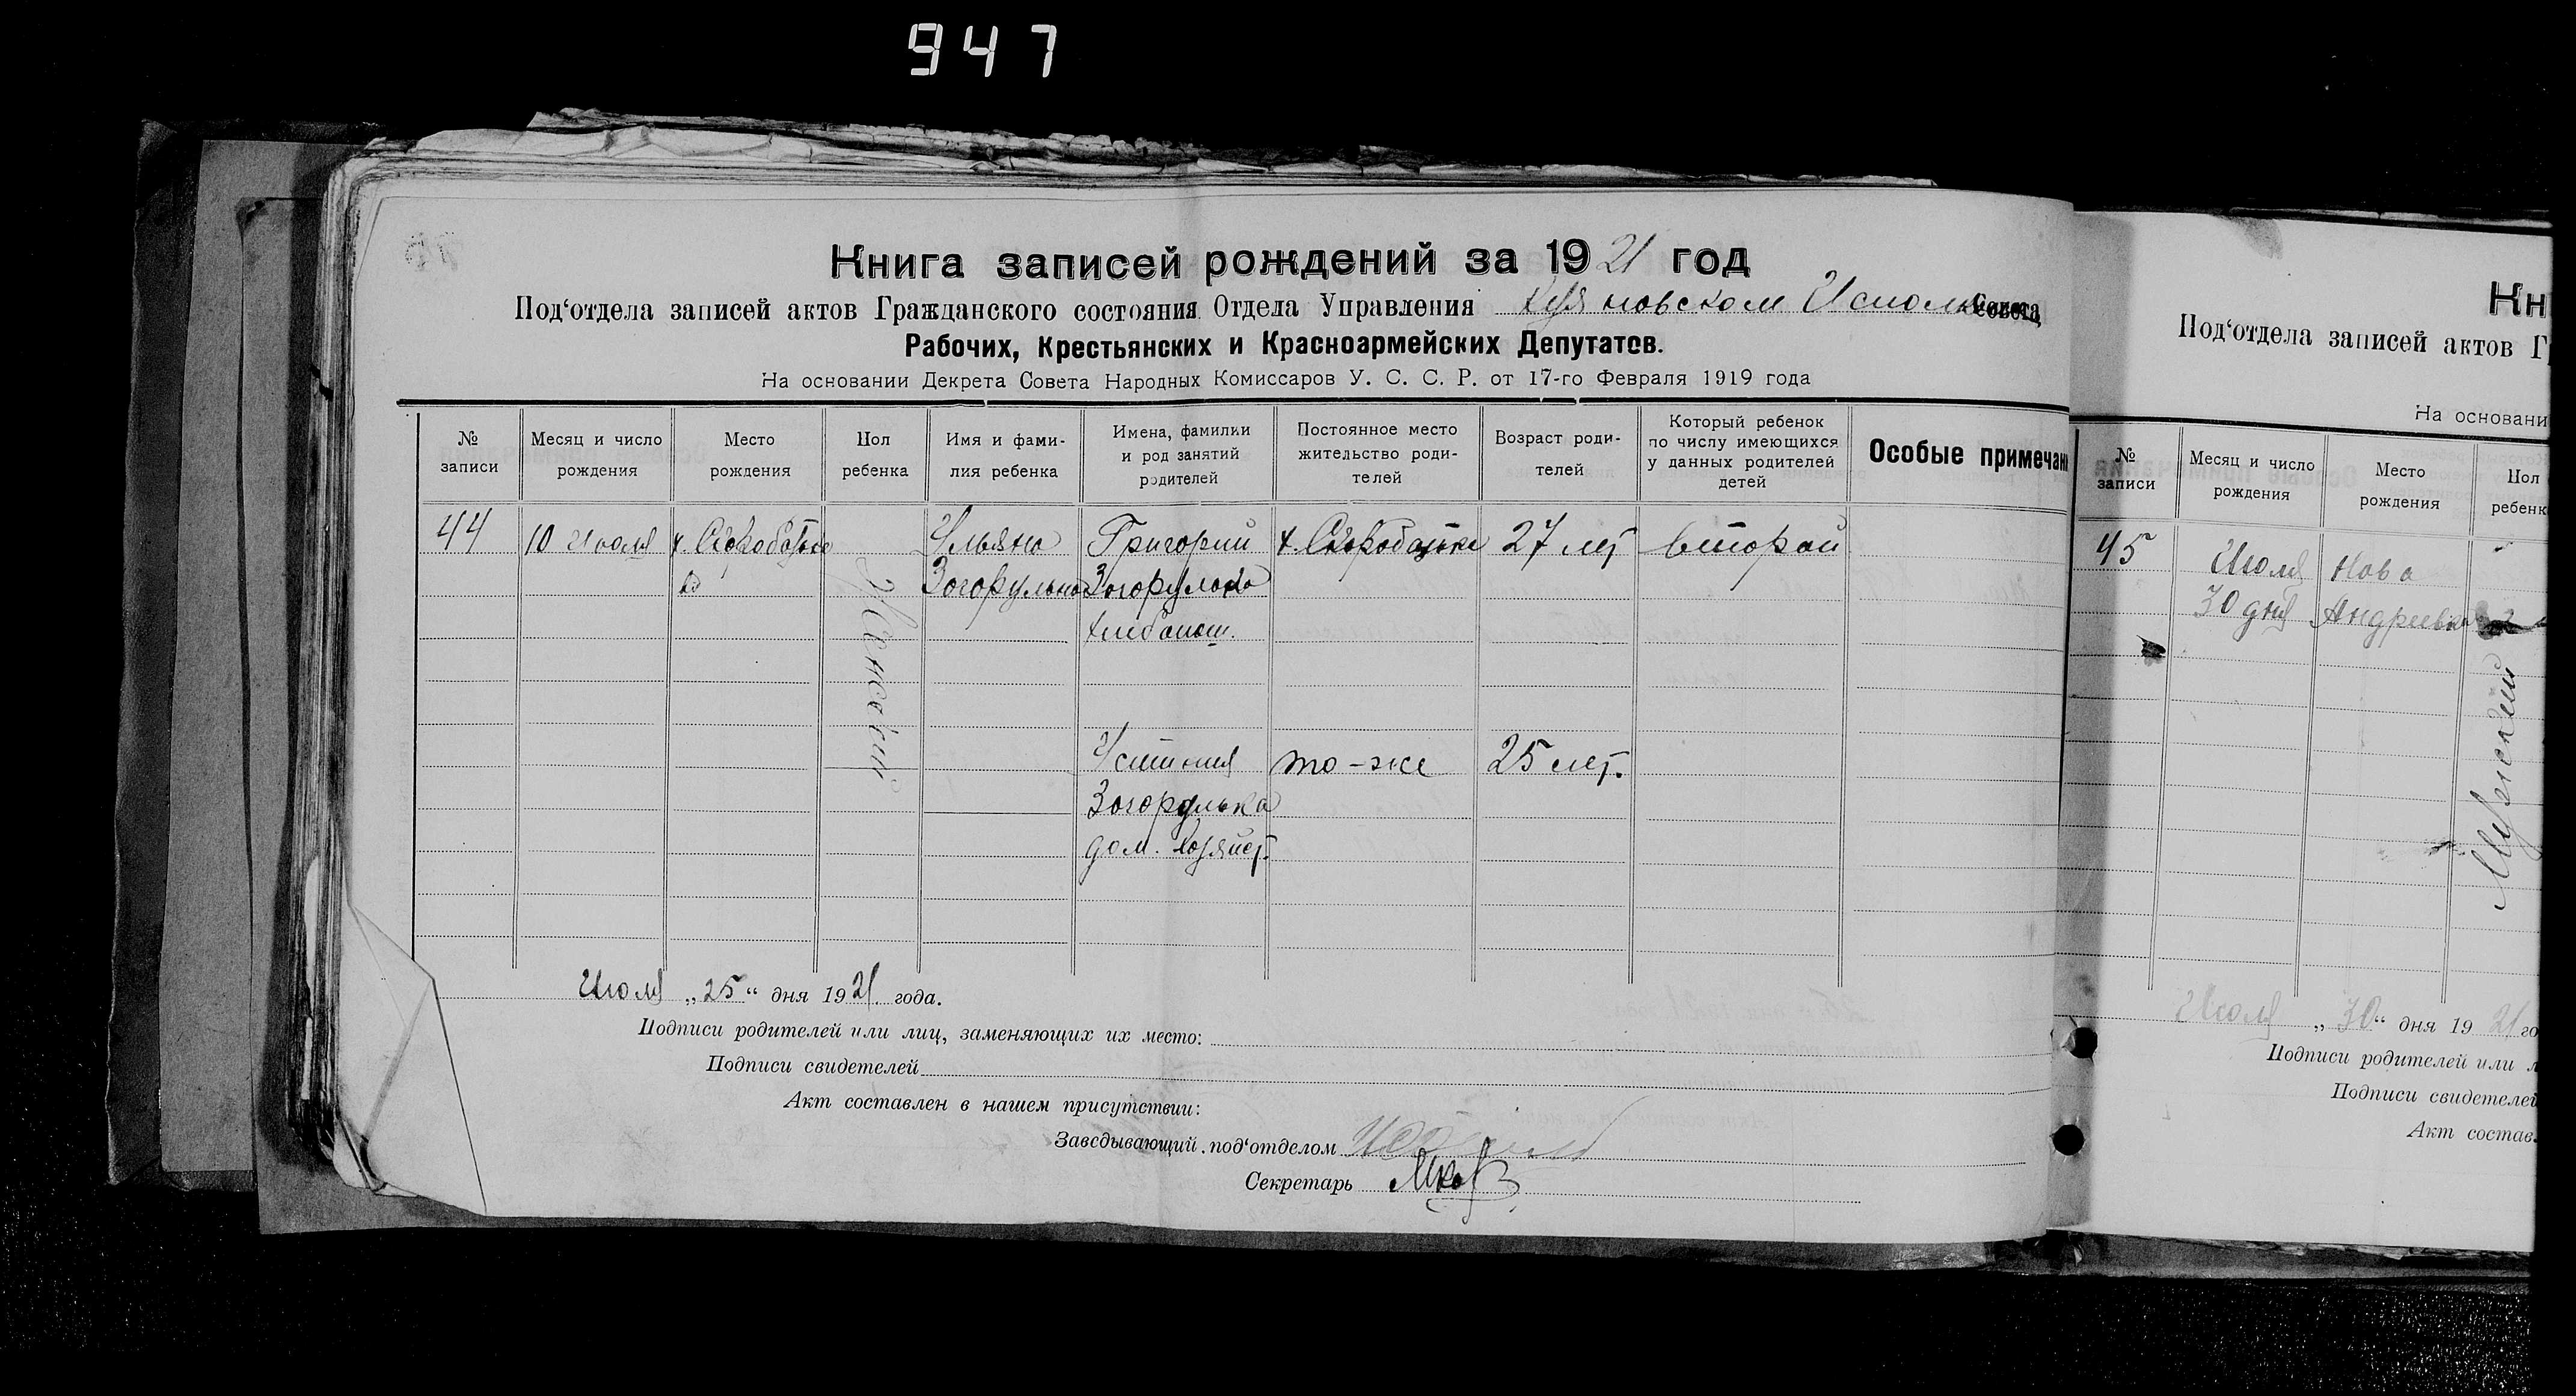 947
Книга записей рождений за 1921 год
Под‘отдела записей актов Гражданского состояния Отдела Управления
Совета
Рабочих, Крестьянских и Красноармейских Депутатов.
На основании Декрета Совета Народных Комиссаров У. С. С. Р. от 17-го Февраля 1919 года
№ записи
Месяц и число рождения
Место рождения
Пол ребенка
Имя и фами-
лия ребенка
Имена, фамилии
и род занятий
родителей
Постоянное место
жительство роди-
телей
Возраст роди-
телей
Который ребенок
по числу имеющихся
у данных родителей
детей
Особые примечан
44
10 Июля
Женский
Ульяна
Григорий
Загорулько
27 лет
второй
Устиния
то-же
25 лет.
дом. хозяйст.
Июля „25“ дня 1921 года.
Подписи родителей или лиц, заменяющих их место:
Подписи свидетелей
Акт составлен в нашем присутствии:
Заведывающий под‘отделом
Секретарь
Кн
Под‘отдела записей актов Г
На основани
№ записи
Месяц и число рождения
Место рождения
Пол
ребенк
45
Июля
30 дня
Ново
Андреевка
Мужский
Июля „30“ дня 1921 го
Подписи родителей или л
Подписи свидетелей
Акт состав